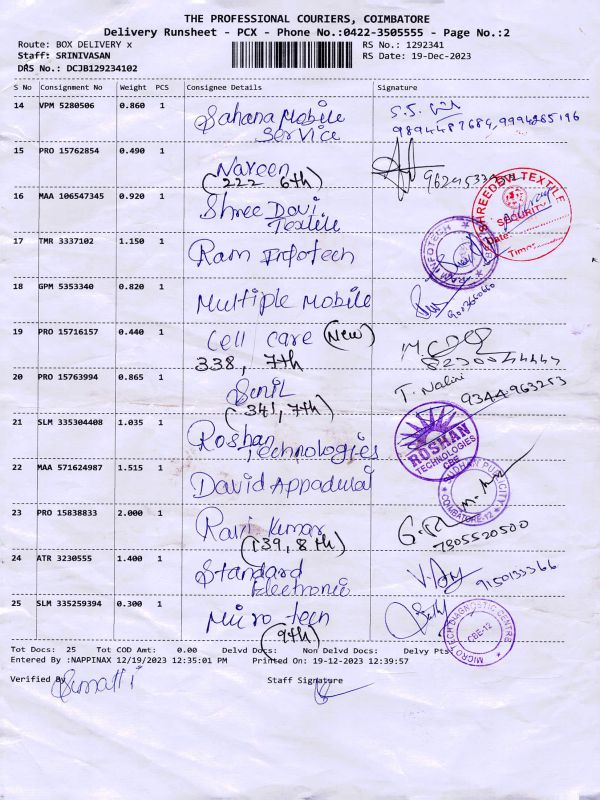 THE PROFESSIONAL COURIERS, COIMBATORE
Delivery Runsheet - PCX - Phone No.:0422-3505555 - Page No.:2
Route: BOX DELIVERY x
RS No.: 1292341
Staff: SRINIVASAN
RS Date: 19-Dec-2023
DRS No.: DCJB129234102
S No Consignment No Weight PCS Consignee Details Signature
14 VPM 5280506 0.860 1 Sahana Mobile
Service
9894487684, 9994285196
15 PRO 15762854 0.490 1 Naveen
(222 6th)
16 MAA 106547345 0.920 1 Shree Devi
Textile
SHREEDEVI TEXTILE
SECURITY
Date
Time
17 TMR 3337102 1.150 1 Ram Infotech
RAM INFOTECH
18 GPM 5353340 0.820 1 Multiple Mobile
19 PRO 15716157 0.440 1 Cell care (New)
338, 7th
20 PRO 15763994 0.865 1 Sunil
(341, 7th)
T. Nalini
9344963253
21 SLM 335304408 1.035 1 Roshan
Technologies
ROSHAN
TECHNOLOGIES
CBE
22 MAA 571624987 1.515 1 David Appadurai
SUDHAN PUBLICITY
COIMBATORE-12
23 PRO 15838833 2.000 1 Ravi Kumar
(139, 8th)
7305520500
24 ATR 3230555 1.400 1 Standard
Electronic
25 SLM 335259394 0.300 1 Micro tech
(9th)
MICRO TECH DIAGNOSTIC CENTRE
CBE-12
Tot Docs: 25 Tot COD Amt: 0.00 Delvd Docs: Non Delvd Docs: Delvy Pts:
Entered By :NAPPINAX 12/19/2023 12:35:01 PM Printed On: 19-12-2023 12:39:57
Verified By
Staff Signature